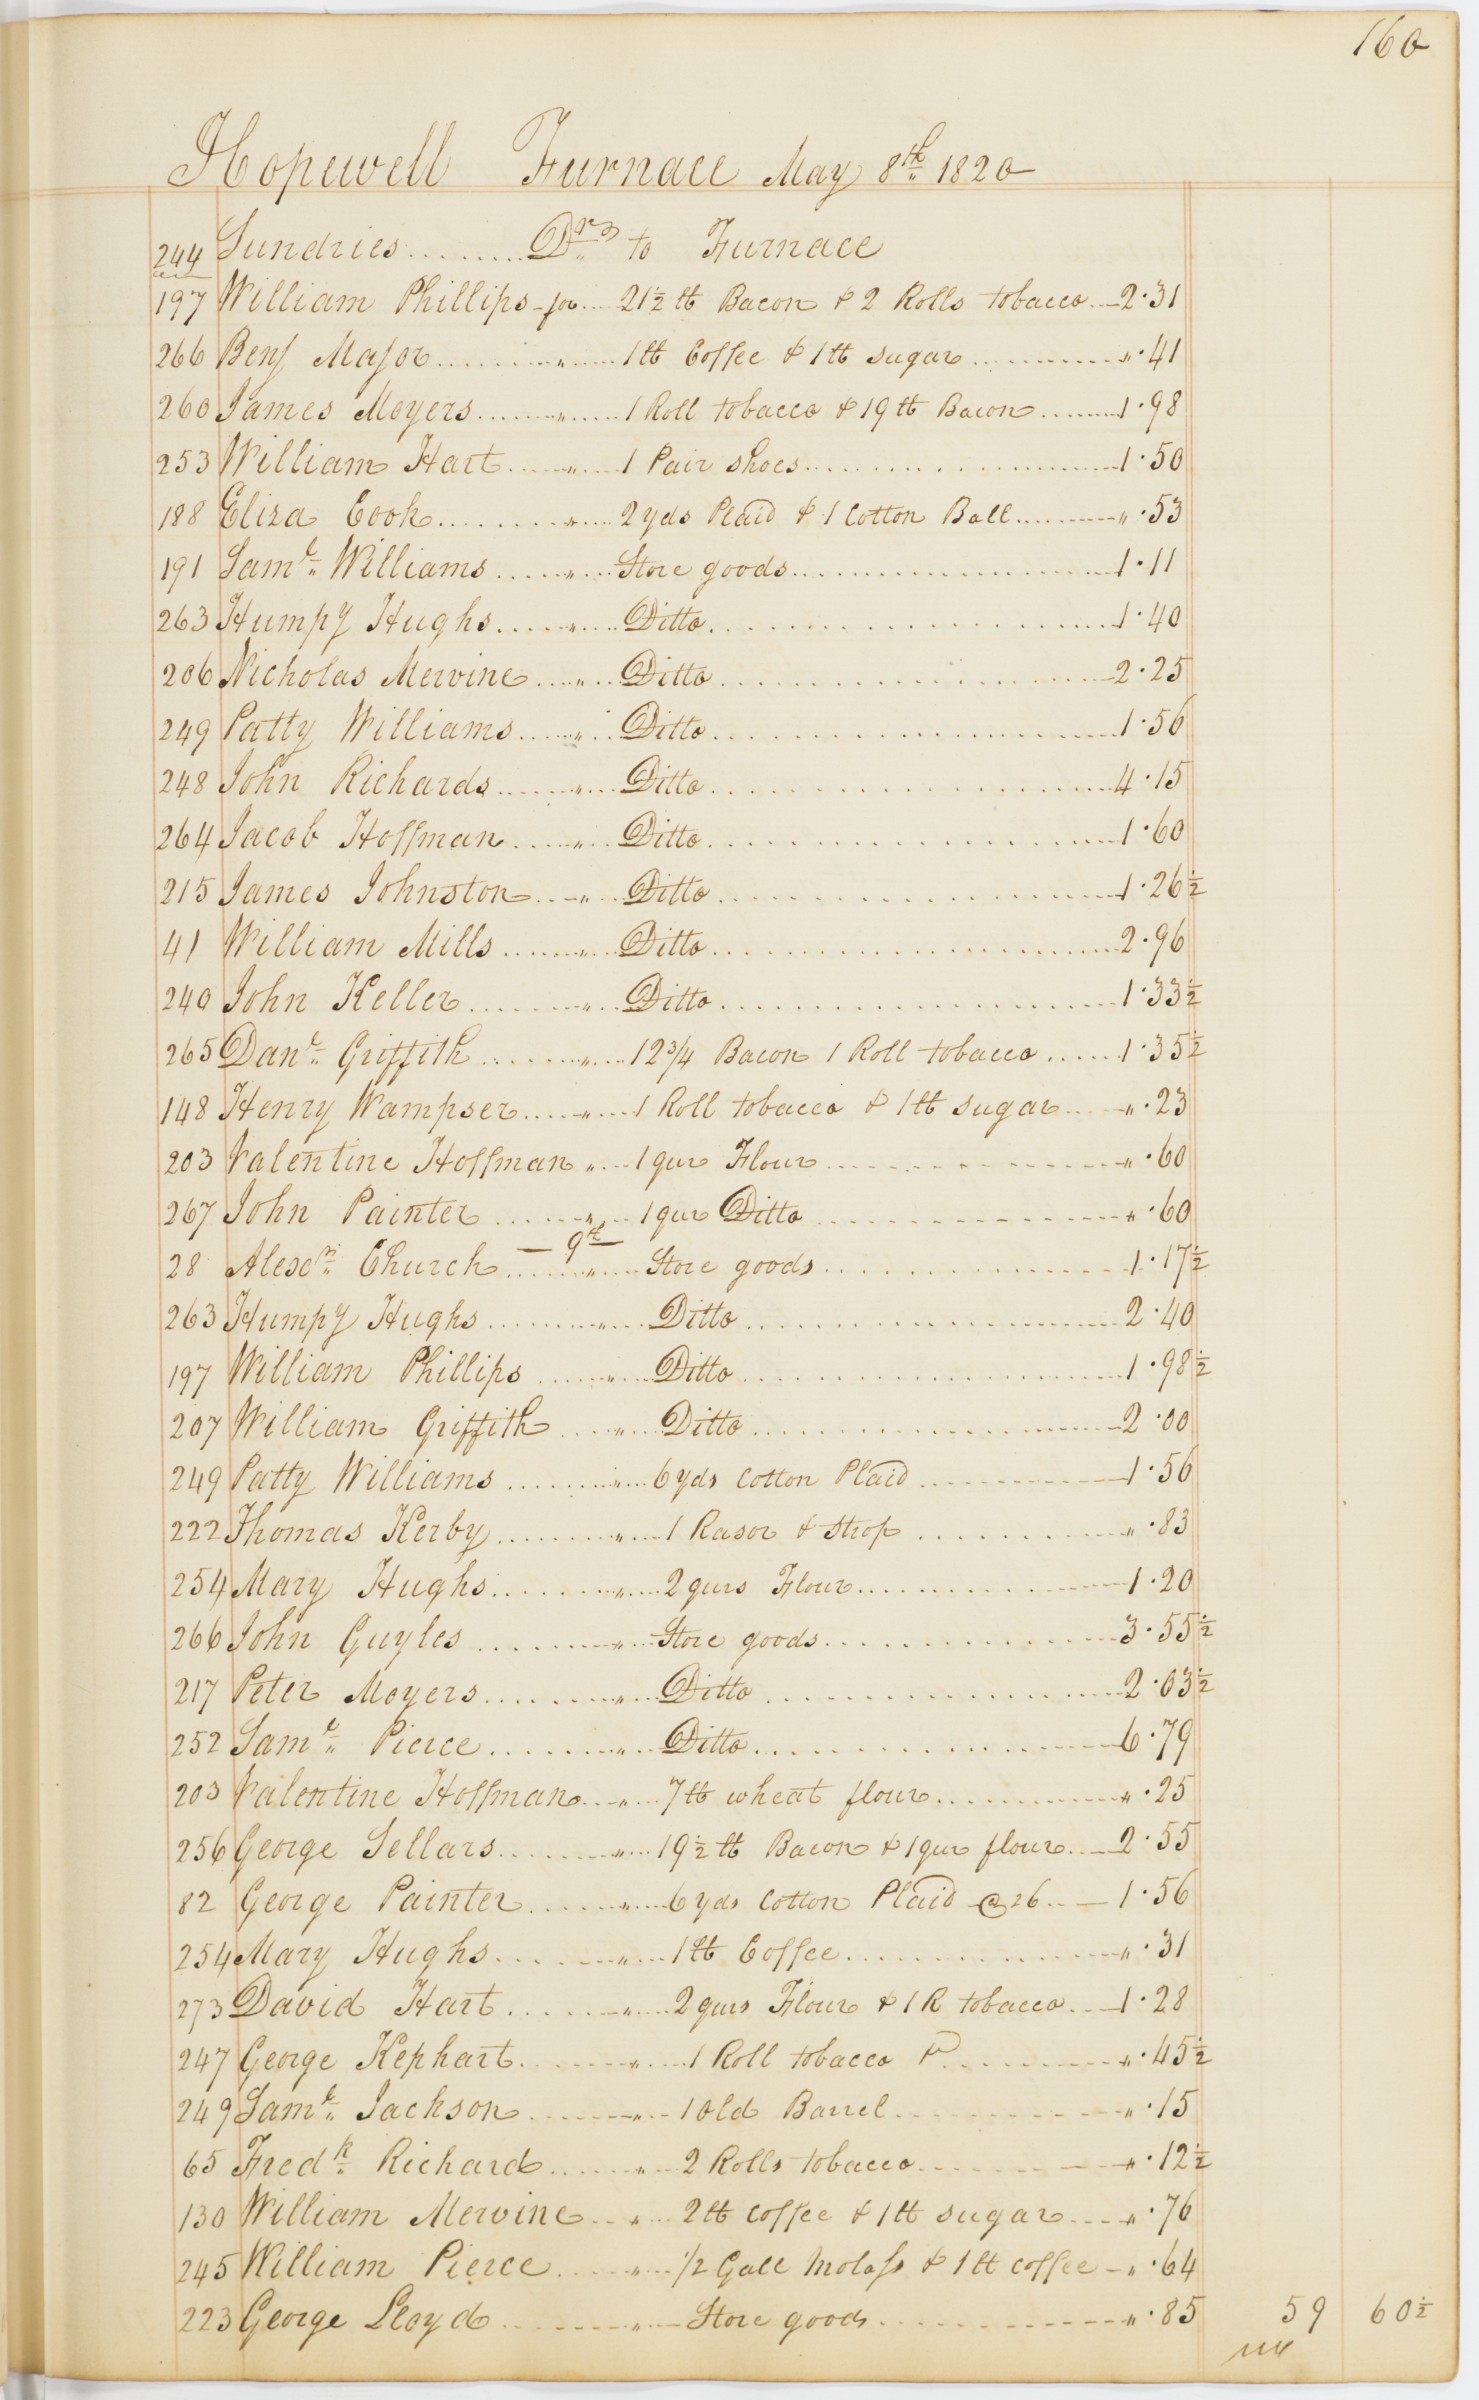 160
Hopewell Furnace May 8th 1820
244 Sundries ......... Drs to Furnace
197 William Phillips for .... 21½ lb Bacon & 2 Rolls tobacco .. 2.31
266 Benj Major ........ " ..... 1 lb Coffee & 1 lb sugar ........... " .41
260 James Moyers ........ " ..... 1 Roll tobacco & 19 lb Bacon ........ 1.98
253 William Hart ..... " .... 1 Pair shoes ................ 1.50
188 Eliza Cook ......... " .... 2 yds Plaid & 1 Cotton Ball ......... " .53
191 Saml Williams ..... " ... Store goods ................ 1.11
263 Humpy Hughs ..... " .... Ditto ................ 1.40
206 Nicholas Mervine .... " ... Ditto ................ 2.25
249 Patty Williams ..... " .. Ditto ................ 1.56
248 John Richards ...... " ... Ditto ................ 4.15
264 Jacob Hoffman .... " .. Ditto ................ 1.60
215 James Johnston .... " ... Ditto ................ 1.26½
41 William Mills ...... " ... Ditto ................ 2.96
240 John Keller ....... " .. Ditto ................ 1.33½
265 Danl Griffith ....... " .... 12¾ Bacon 1 Roll tobacco ...... 1.35½
148 Henry Wampser ..... " .... 1 Roll tobacco & 1 lb sugar .... " .23
203 Valentine Hoffman " .... 1 qur Flour ............... " .60
267 John Painter ...... " ... 1 qur Ditto ............... " .60
— 9th —
28 Alexr Church ...... " .... Store goods ............... 1.17½
263 Humpy Hughs ........ " .... Ditto ................ 2.40
197 William Phillips ...... " .... Ditto ................ 1.98½
207 William Griffith .... " ... Ditto ................ 2.00
249 Patty Williams ....... " .... 6 yds Cotton Plaid ............ 1.56
222 Thomas Kerby ........ " .... 1 Rasor & Strop ........... " .83
254 Mary Hughs ........ " .... 2 qurs Flour .............. 1.20
266 John Guyles ........ " ... Store goods .............. 3.55½
217 Peter Moyers ........ " ... Ditto ................ 2.03½
252 Saml Pierce ........ " .. Ditto ................ 6.79
203 Valentine Hoffman ... " .... 7 lb wheat flour ............ " .25
256 George Sellars ........ " ... 19½ lb Bacon & 1 qur flour .... 2.55
82 George Painter ....... " .... 6 yds Cotton Plaid @ 26 ... 1.56
254 Mary Hughs ....... " .... 1 lb Coffee .............. " .31
273 David Hart ....... " .... 2 qurs Flour & 1 R tobacco ... 1.28
247 George Kephart ....... " .... 1 Roll tobacco P ........... " .45½
249 Saml Jackson ....... " .. 1 Old Barrel .............. " .15
65 Fredk Richard ...... " ... 2 Rolls tobacco ............ " .12½
130 William Mervine ... " ... 2 lb Coffee & 1 lb sugar .... " .76
245 William Pierce ..... " ... ½ Gall Molass & 1 lb coffee .. " .64
223 George Lloyd ........ " ... Store goods .............. " .85 59 60½